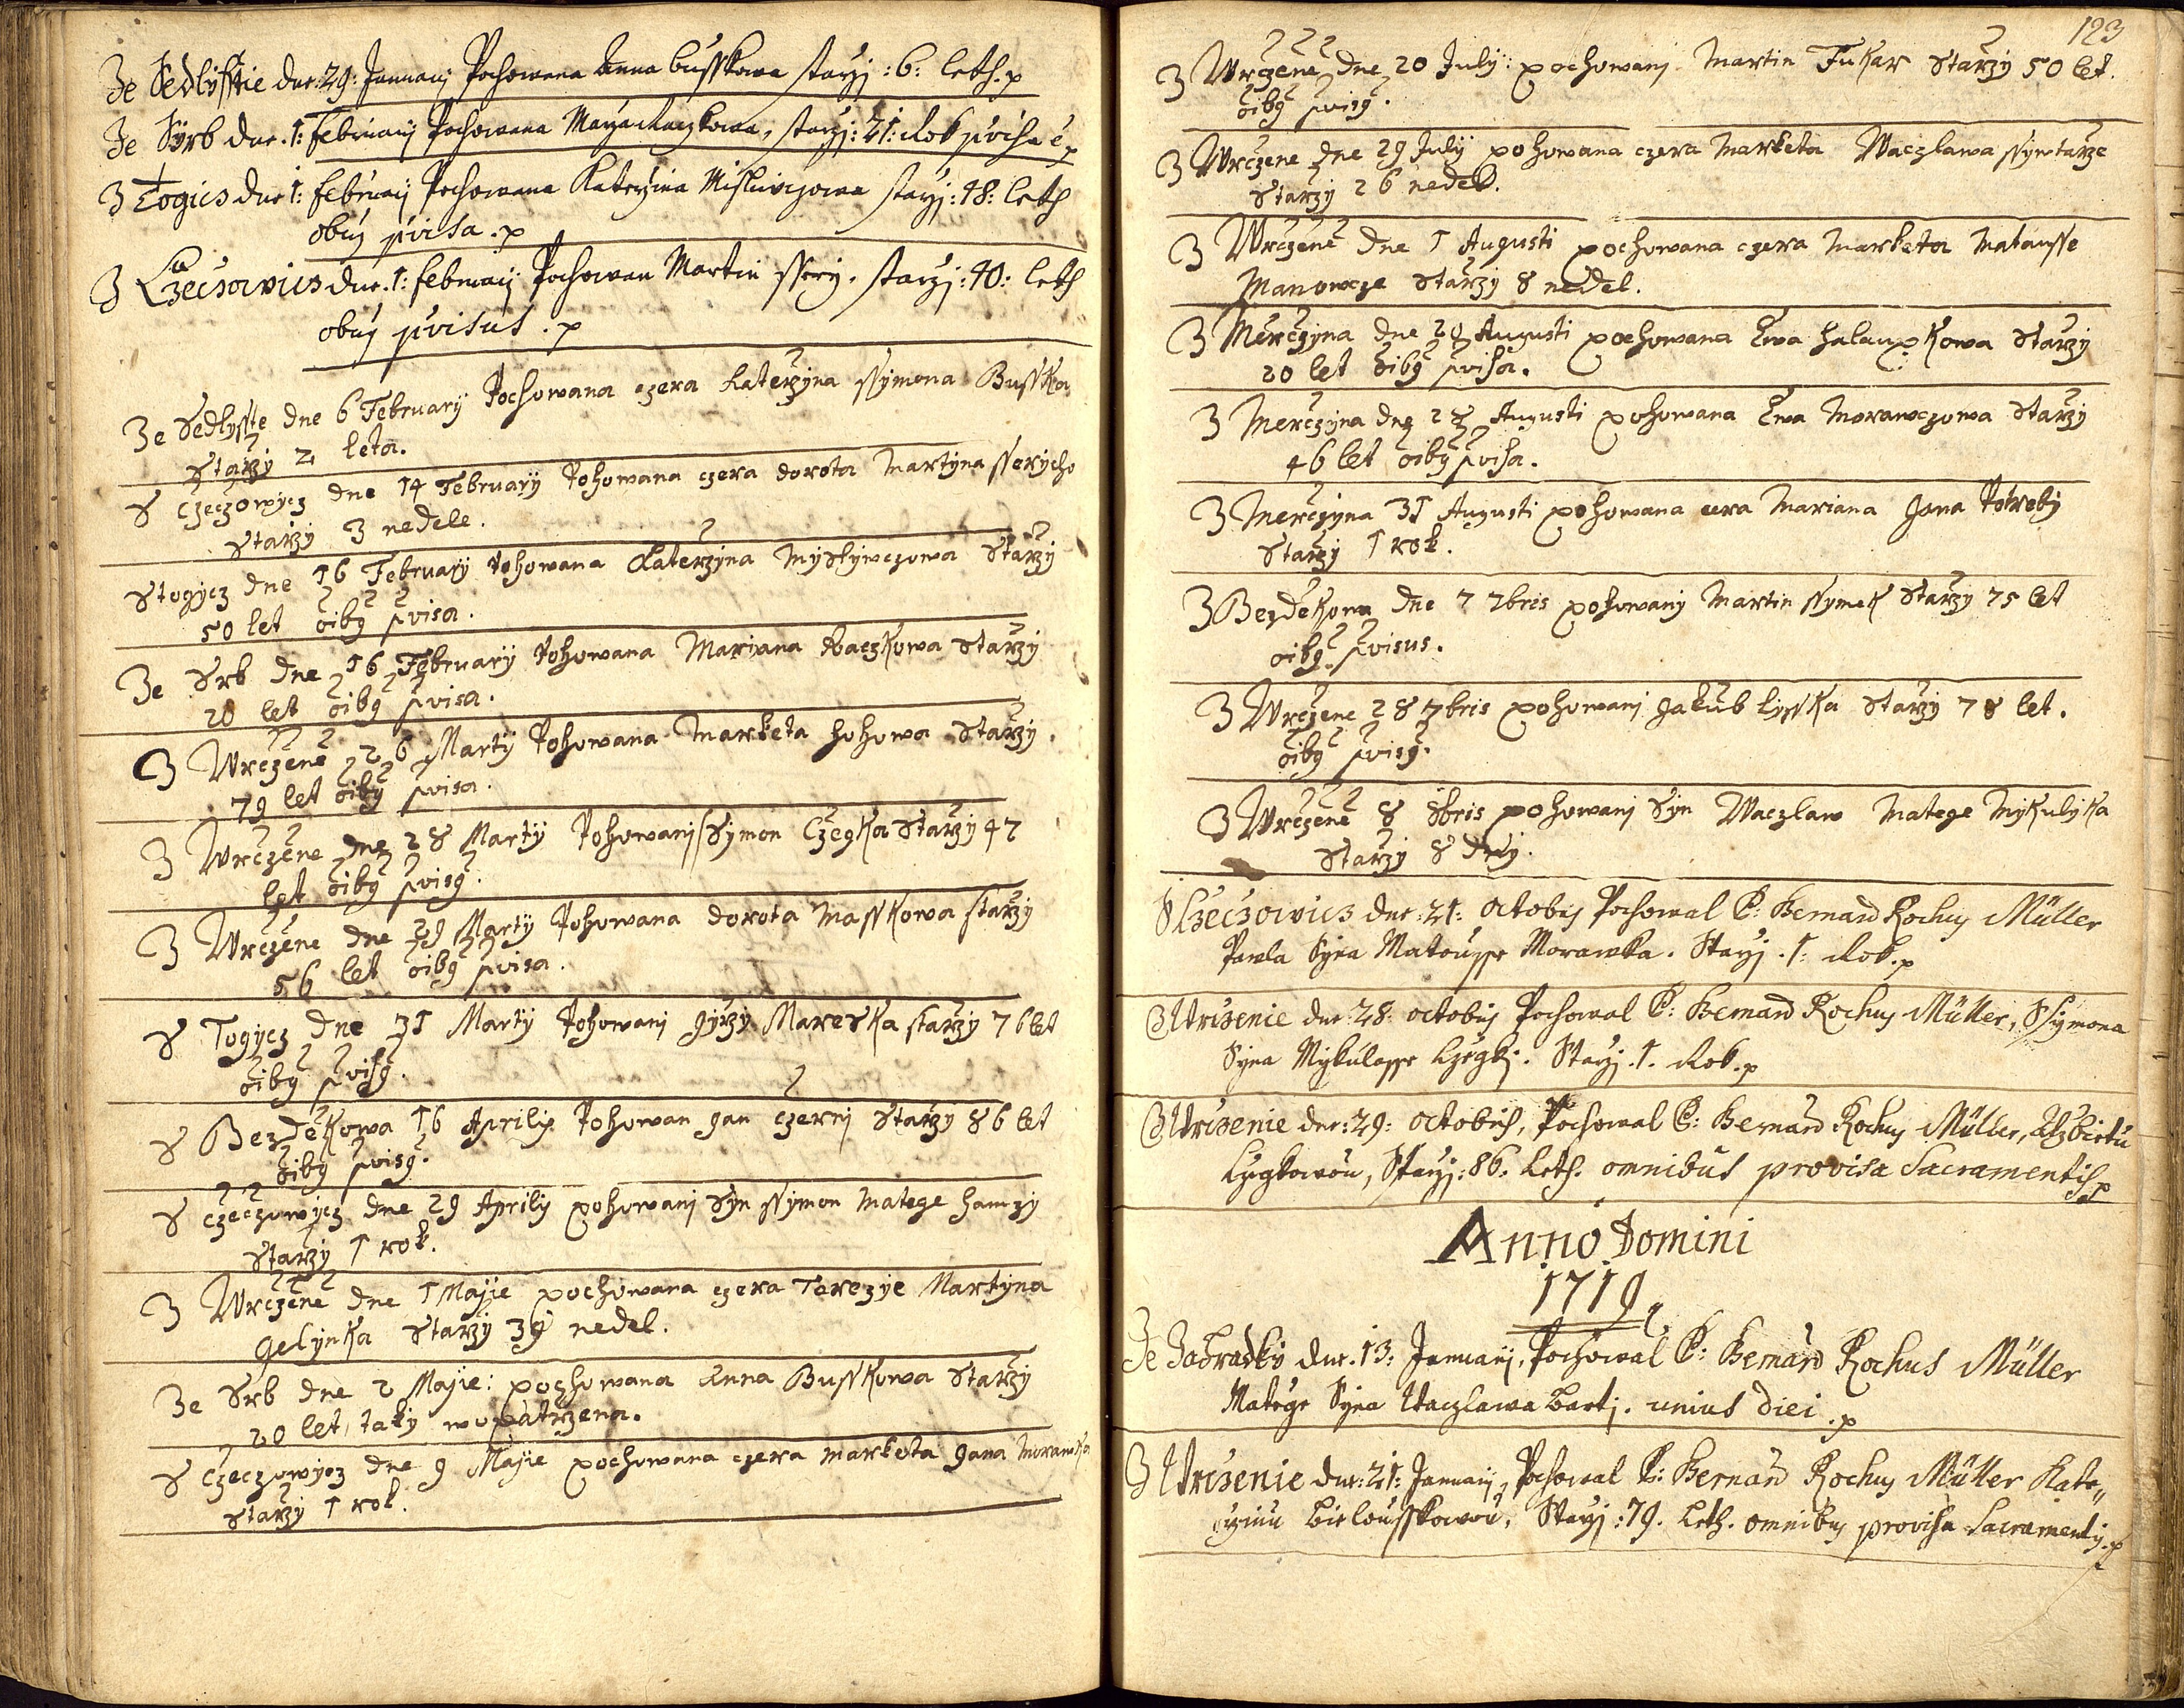 Ze Sedlisstie dne: 29: Januarij Pochowana Anna Busskowa starzj: 6: leth. p
Ze Syrb dne. 1: Februarij Pochowana Marya Raczkowa, starzj: 21: Rok p̃visa ẽ p
Z Togics dne 1: Februarij Pochowana Katerzina Misliwczowa starzj: 48: leth
obuj p̃visa. p
Z Czecsowics dne. 1: Februarij Pochowan Martin ssery. starzj: 40: leth
obuj p̃visus. p
Ze Sedlysste dne 6 February Pochowana czera Katerzyna ssymona Busska
starzy 2 leta.
S Czeczowycz dne 14 February Pohowana czera dorota Martyna sserycho
starzy 3 nedele.
S togycz dne 16 February Pohowana Katerzyna Myslywczowa Starzy
50 let õibꝯ p̃visa.
Ze Srb dne 16 February Pohowana Mariana Raczkowa Starzy
20 let õibꝯ p̃visa.
Z Wrczene 26 Marty Pohowana Marketa hohowa Starzy.
79 let õibꝯ p̃visa.
Z Wrczene dne 28 Marty Pohowanj Ssymon Czegka Starzy 47
let õibꝯ p̃visꝯ.
Z Wrczene dne 29 Marty Pohowana dorota Masskowa starzy
56 let õibꝯ p̃visa.
S Togycz dne 31 Marty Pohowanj gyrzy Mareska starzy 76 let
õibꝯ p̃visꝯ.
S Bezdekowa 16 Aprilis Pohowan gan czernj Starzy 86 let
õibꝯ p̃visꝯ.
S czeczowycz dne 29 Aprilis pohowanj Syn ssymon Matege hamzy
Starzy 1 rok.
Z Wrczene dne 1 Majie pochowana czera Terezye Martyna
Gelynka Starzy 39 nedel.
Ze Srb dne 2 Majie: pochowana Anna Busskowa Starzy
20 let, taky wopatrzena.
S Czeczowycz dne 9 Majie pochowana czera Marketa gana Morawka
starzy 1 rok.
123
Z Wrczene dne 20 July: pochowanj Martin Fukar Starzy 50 let.
õibꝯ p̃visꝯ.
Z Wrczene dne 29 July pohowana czera Marketa Waczlawa ssyntarze
Starzy 26 nedel.
Z Wrczene dne 1 Augusti pochowana czera Marketa Matausse
Manowcze Starzy 8 nedel.
Z Merczyna dne 20 Augusti pochowana Ewa halaupkowa Starzy
20 let õibꝯ p̃visa.
Z Merczyna dne Augusti pohowana Ewa Morawczowa Starzy
46 let õibꝯ p̃visa.
Z Merczyna 31 Augusti pohowana cera Mariana Jana Potreby
Starzy 1 rok.
Z Bezdekowa dne 7 7bris pohowanj Martin ssymek Starzy 75 let
õibꝯ p̃visus.
Z Wrczene 28 7bris pohowanj Jakub Lysska Starzy 78 let.
õibꝯ p̃visꝯ.
Z Wrczene 8 8bris pohowanj Syn Waczlaw Matege Mykulyka
Starzy 8 dny.
S Czecsowics dne: 21: Octobris Pochowal P: Bernard Rochus Müller
Pawla Syna Matousse Morawka. Starzj. 1: Rok. p
Z Wrcsenie dne: 28. octobris Pochowal P: Bernard Rochus Müller, Ssymona
Syna Mykulasse Czegkj. Starzj. 1. Rok. p
Z Wrcsenie dne: 29: octobris, Pochowal P: Bernard Rochus Müller, Alzbietu
Czegkowou, Starzj: 86. Leth. omnibus provisa Sacramentis p
Anno Domini
1719.
Ze Zahradky dne. 13: Januarij, Pochowal P: Bernard Rochus Müller
Matege Syna Waczlawa Bartj. unius diei. p
Z Wrcsenie dne: 21: Januarij, Pochowal P: Bernard Rochus Müller Kate„
rzinu Bielousskowou, Starzj: 79. Leth. omnibus provisa Sacramentis. p